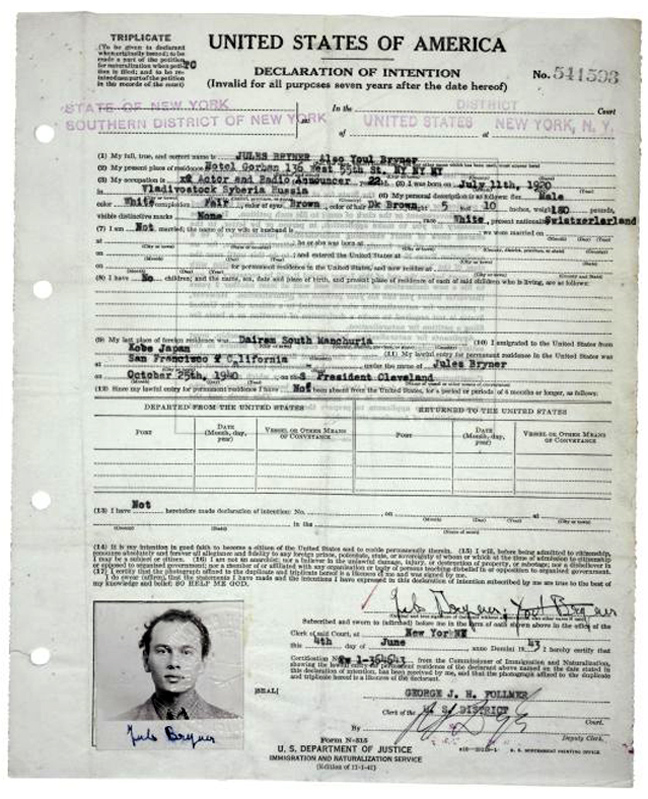 TRIPLICATE
(To be given to declarant
UNITED STATES OF AMERICA
DECLARATION OF INTENTION
(Invalid for all purposes seven years after the date hereof)
No. 541593
STATE OF NEW YORK
SOUTHERN DISTRICT OF NEW YORK
In the DISTRICT Court
of UNITED STATES at NEW YORK, N. Y.
(1) My full, true, and correct name is JULES BRYNER Also Youl Bryner
(2) My present place of residence Hotel Gorham 136 West 55th St. NY NY NY
(3) My occupation is Actor and Radio Announcer 22 (5) I was born on July 11th, 1920
in Vladivostock Syberia Russia (6) My personal description is as follows: Sex Male
color White complexion Fair color of eyes Brown color of hair Dk Brown 5 10 inches, weight 180 pounds,
visible distinctive marks None race White present nationality Swistzerlarland
(7) I am Not married; the name of my wife or husband is we were married on
at he or she was born at
on ; and entered the United States at
on for permanent residence in the United States, and now resides at
(8) I have No children; and the name, sex, date and place of birth, and present place of residence of each of said children who is living, are as follows:
(9) My last place of foreign residence was Dairen South Manchuria (10) I emigrated to the United States from
Kobe Japan (11) My lawful entry for permanent residence in the United States was
at San Francisco C_lifornia under the name of Jules Bryner
on October 25th, 1940 on the S President Cleveland
(12) Since my lawful entry for permanent residence I have Not been absent from the United States, for a period or periods of 6 months or longer, as follows:
DEPARTED FROM THE UNITED STATES
RETURNED TO THE UNITED STATES
PORT
DATE (Month, day, year)
VESSEL OR OTHER MEANS OF CONVEYANCE
PORT
DATE (Month, day, year)
VESSEL OR OTHER MEANS OF CONVEYANCE
(13) I have Not heretofore made declaration of intention: No. on at
in the
(14) It is my intention in good faith to become a citizen of the United States and to reside permanently therein. (15) I will, before being admitted to citizenship,
renounce absolutely and forever all allegiance and fidelity to any foreign prince, potentate, state, or sovereignty of whom or which at the time of admission to citizenship
I may be a subject or citizen. (16) I am not an anarchist; nor a believer in the unlawful damage, injury, or destruction of property, or sabotage; nor a disbeliever in
or opposed to organized government; nor a member of or affiliated with any organization or body of persons teaching disbelief in or opposition to organized government.
(17) I certify that the photograph affixed to the duplicate and triplicate hereof is a likeness of me and was signed by me.
I do swear (affirm), that the statements I have made and the intentions I have expressed in this declaration of intention subscribed by me are true to the best of
my knowledge and belief: SO HELP ME GOD.
Jules Bryner; Youl Bryner
Subscribed and sworn to (affirmed) before me in the form of oath shown above in the office of the
Clerk of said Court, at New York NY
this 4th day of June anno Domini 19 43 I hereby certify that
Certification No. from the Commissioner of Immigration and Naturalization,
showing the lawful entry for permanent residence of the declarant above named on the date stated in
this declaration of intention, has been received by me, and that the photograph affixed to the duplicate
and triplicate hereof is a likeness of the declarant.
[SEAL]
GEORGE J. H. FOLLMER
Clerk of the U. S. DISTRICT Court.
By Deputy Clerk.
Jules Bryner
Form N-315
U. S. DEPARTMENT OF JUSTICE
IMMIGRATION AND NATURALIZATION SERVICE
(Edition of 11-1-41)
U. S. GOVERNMENT PRINTING OFFICE